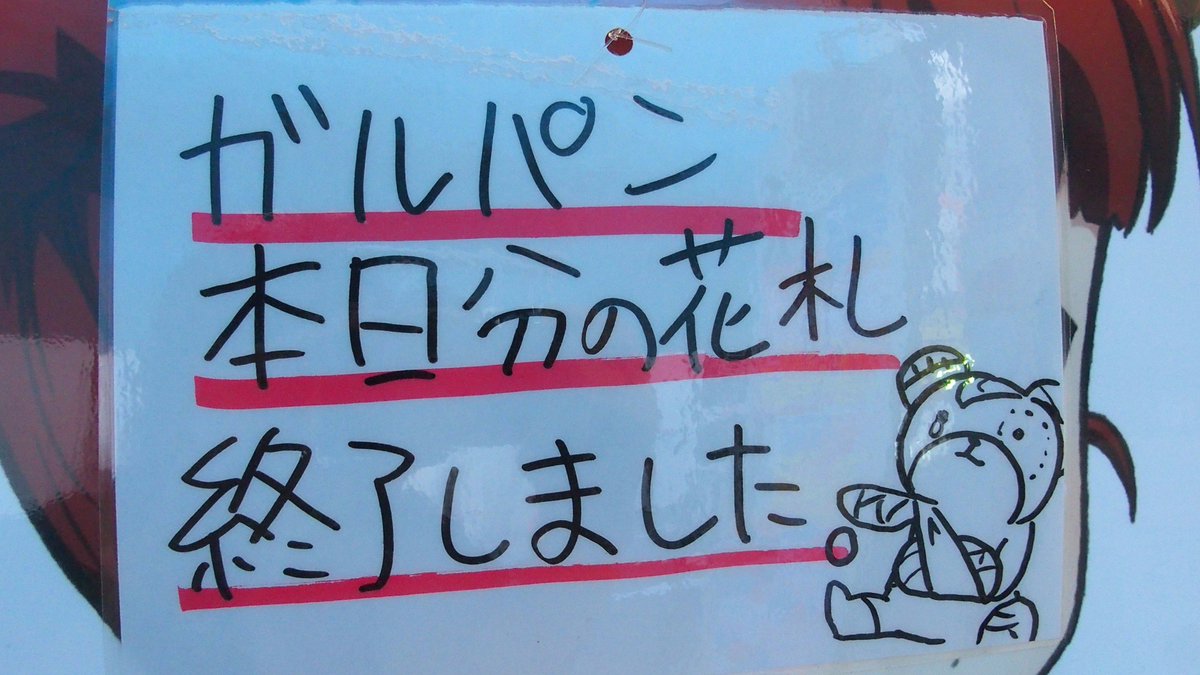 ガルパン
本日分の花札
終了しました